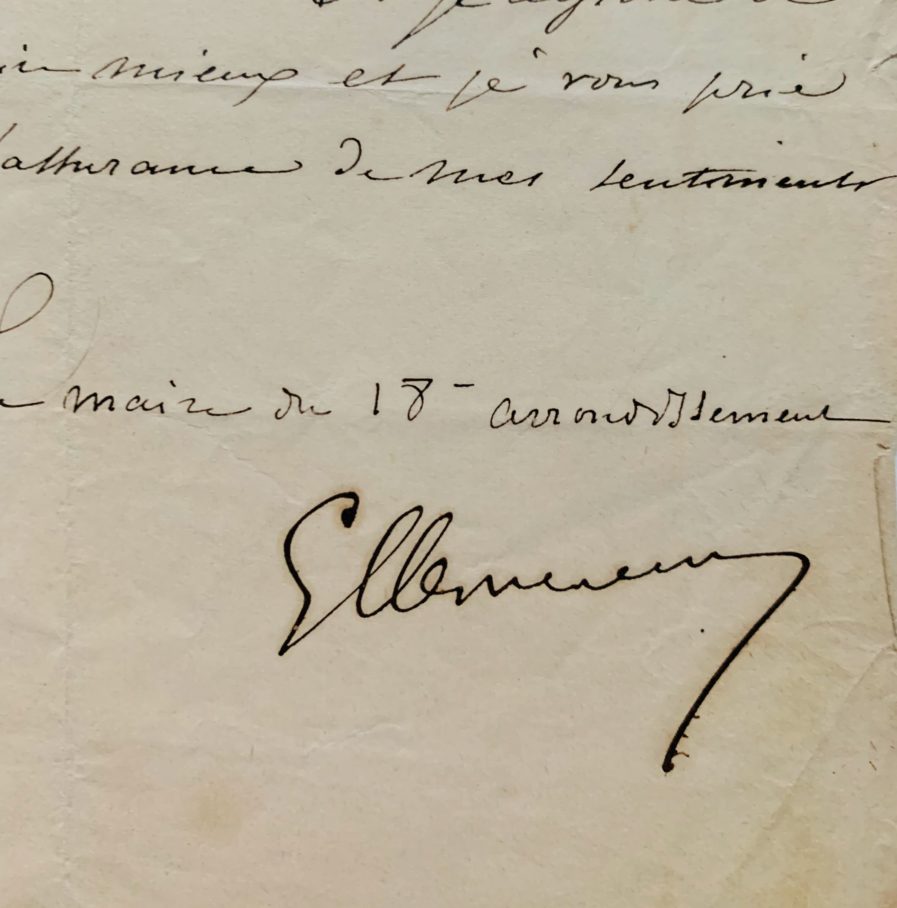 mieux et je vous prie
l'assurance de mes sentiments
maire du 18e arrondissement
GClemenceau